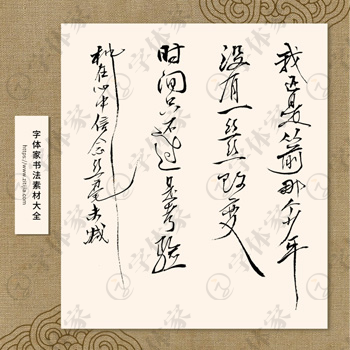 我还是从前那个少年
没有一丝丝改变
时间只不过是考验
种在心中信念丝毫未减
字体家书法素材大全
https://www.zitijia.com
字体家